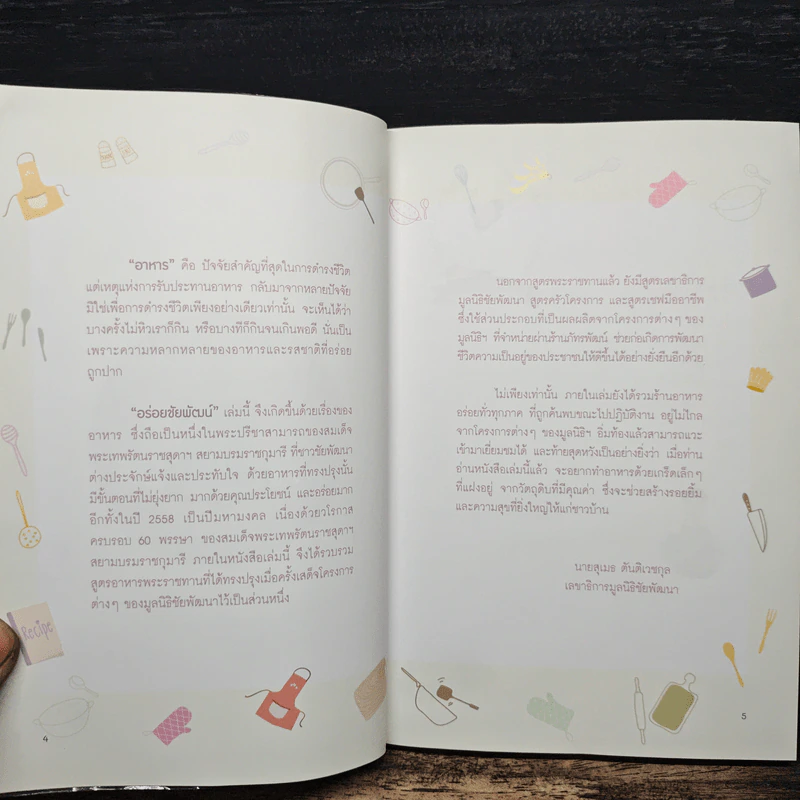 "อาหาร" คือ ปัจจัยสำคัญที่สุดในการดำรงชีวิต
แต่เหตุแห่งการรับประทานอาหาร กลับมาจากหลายปัจจัย
มิใช่เพื่อการดำรงชีวิตเพียงอย่างเดียวเท่านั้น จะเห็นได้ว่า
บางครั้งไม่หิวเราก็กิน หรือบางทีก็กินจนเกินพอดี นั่นเป็น
เพราะความหลากหลายของอาหารและรสชาติที่อร่อย
ถูกปาก
"อร่อยชัยพัฒน์" เล่มนี้ จึงเกิดขึ้นด้วยเรื่องของ
อาหาร ซึ่งถือเป็นหนึ่งในพระปรีชาสามารถของสมเด็จ
พระเทพรัตนราชสุดาฯ สยามบรมราชกุมารี ที่ชาวชัยพัฒนา
ต่างประจักษ์แจ้งและประทับใจ ด้วยอาหารที่ทรงปรุงนั้น
มีขั้นตอนที่ไม่ยุ่งยาก มากด้วยคุณประโยชน์ และอร่อยมาก
อีกทั้งในปี 2558 เป็นปีมหามงคล เนื่องด้วยวโรกาส
ครบรอบ 60 พรรษา ของสมเด็จพระเทพรัตนราชสุดาฯ
สยามบรมราชกุมารี ภายในหนังสือเล่มนี้ จึงได้รวบรวม
สูตรอาหารพระราชทานที่ได้ทรงปรุงเมื่อครั้งเสด็จโครงการ
ต่างๆ ของมูลนิธิชัยพัฒนาไว้เป็นส่วนหนึ่ง
Recipe
4
นอกจากสูตรพระราชทานแล้ว ยังมีสูตรเลขาธิการ
มูลนิธิชัยพัฒนา สูตรครัวโครงการ และสูตรเชฟมืออาชีพ
ซึ่งใช้ส่วนประกอบที่เป็นผลผลิตจากโครงการต่างๆ ของ
มูลนิธิฯ ที่จำหน่ายผ่านร้านภัทรพัฒน์ ช่วยก่อเกิดการพัฒนา
ชีวิตความเป็นอยู่ของประชาชนให้ดีขึ้นได้อย่างยั่งยืนอีกด้วย
ไม่เพียงเท่านั้น ภายในเล่มยังได้รวมร้านอาหาร
อร่อยทั่วทุกภาค ที่ถูกค้นพบขณะไปปฏิบัติงาน อยู่ไม่ไกล
จากโครงการต่างๆ ของมูลนิธิฯ อิ่มท้องแล้วสามารถแวะ
เข้ามาเยี่ยมชมได้ และท้ายสุดหวังเป็นอย่างยิ่งว่า เมื่อท่าน
อ่านหนังสือเล่มนี้แล้ว จะอยากทำอาหารด้วยเกร็ดเล็กๆ
ที่แฝงอยู่ จากวัตถุดิบที่มีคุณค่า ซึ่งจะช่วยสร้างรอยยิ้ม
และความสุขที่ยิ่งใหญ่ให้แก่ชาวบ้าน
นายสุเมธ ตันติเวชกุล
เลขาธิการมูลนิธิชัยพัฒนา
5